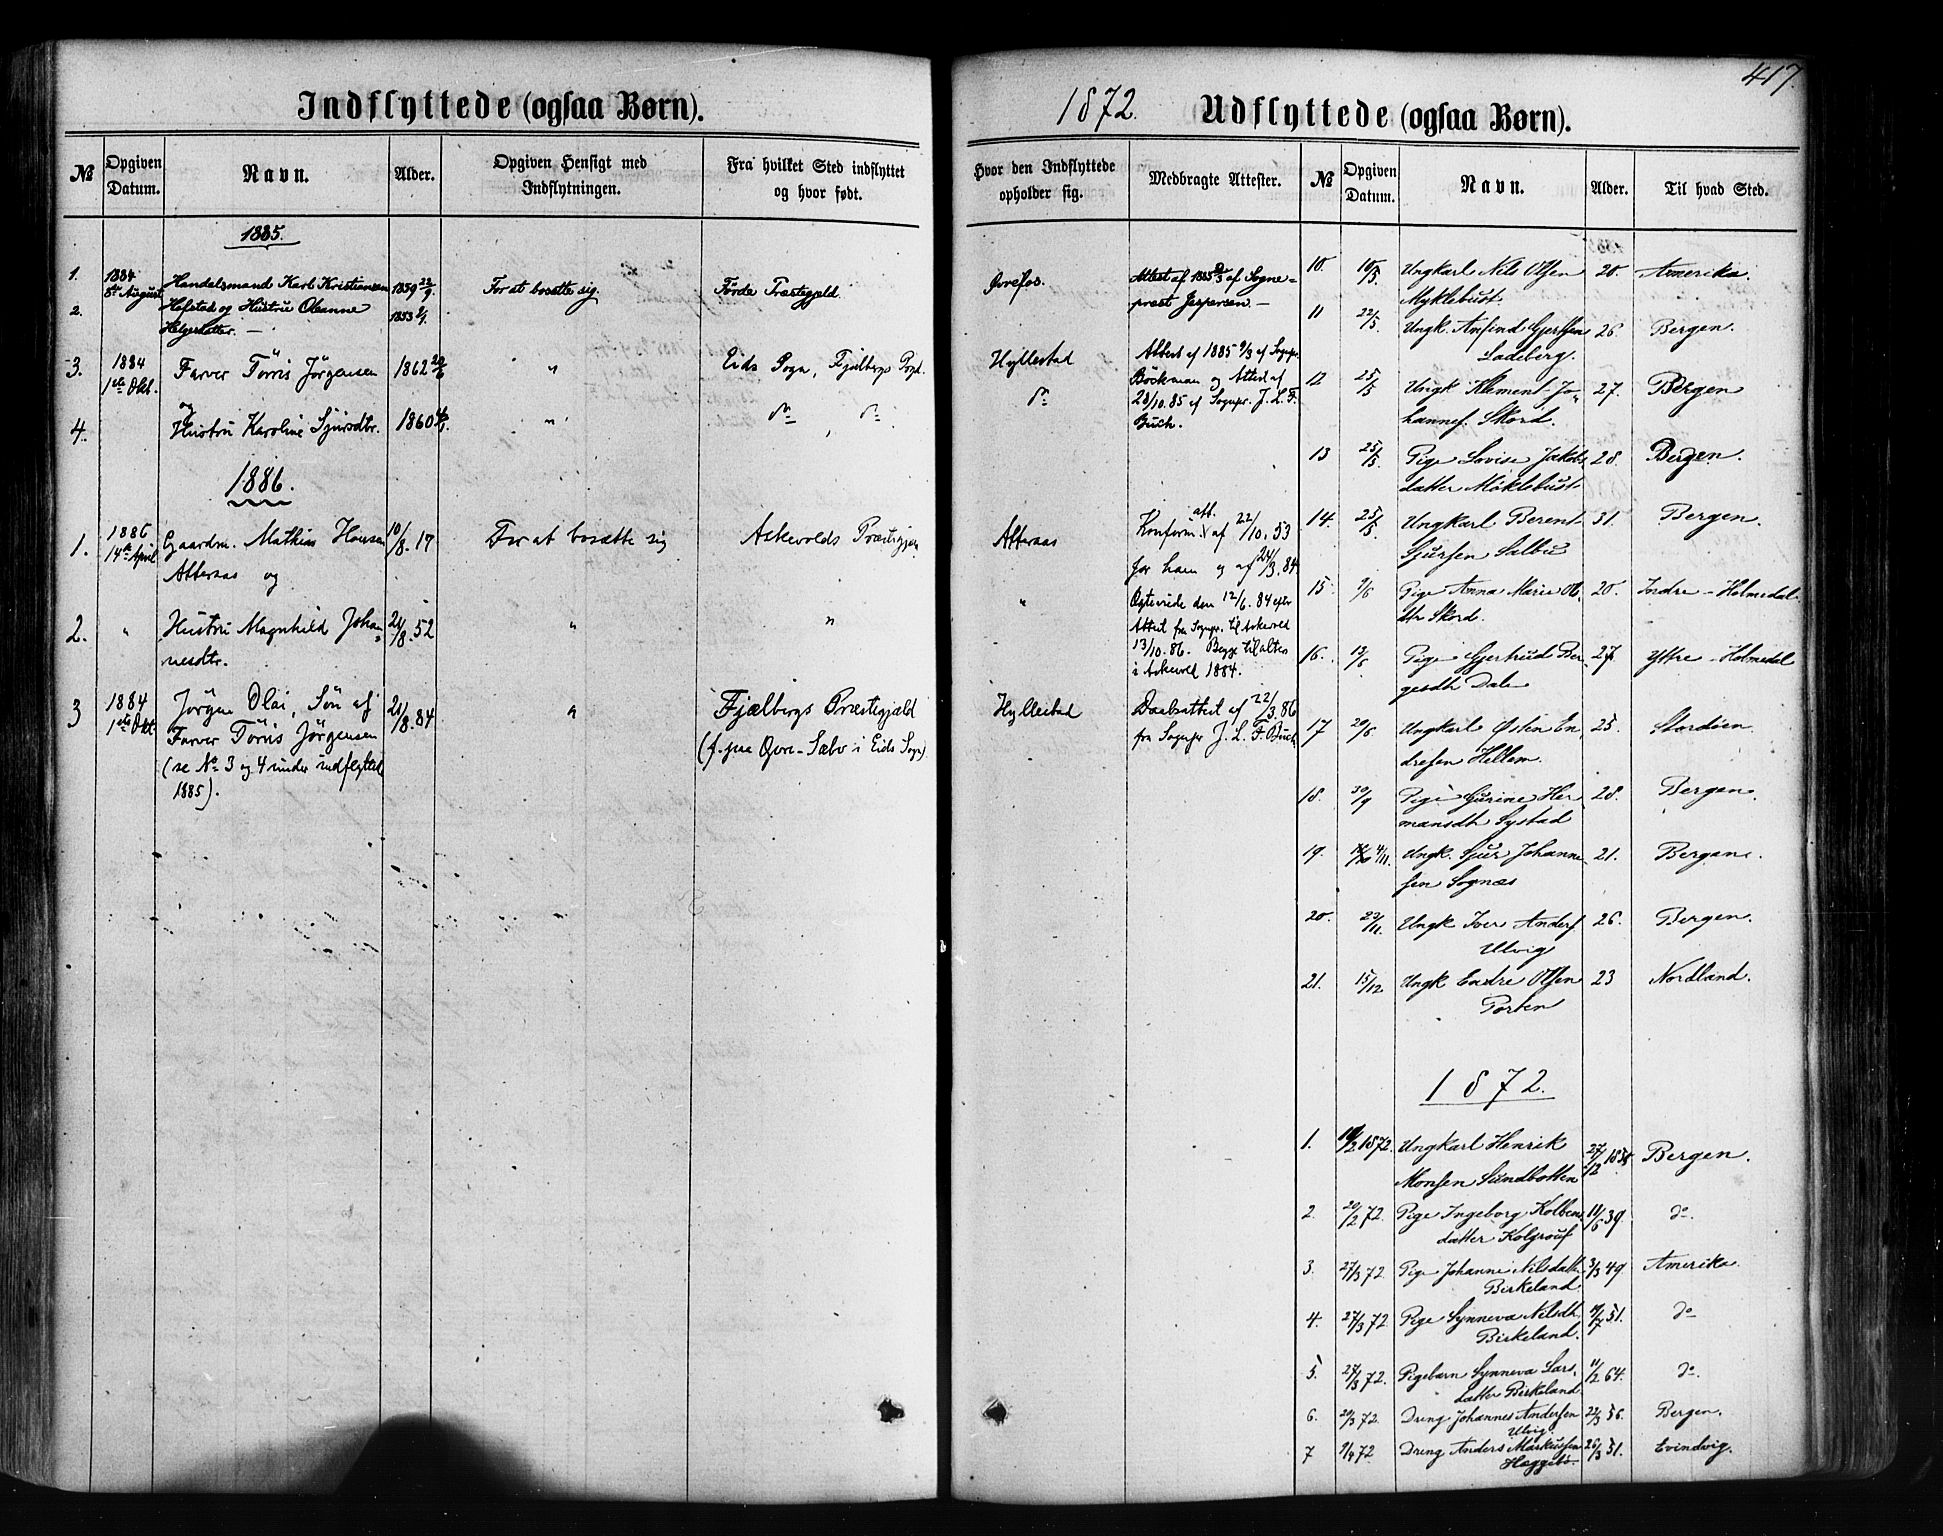 417.
Indflyttede (ogsaa Børn).
1872.
Udflyttede (ogsaa Børn).
№ Opgiven Datum. Navn. Alder. Opgiven Hensigt med Indflytningen. Fra hvilket Sted indflyttet og hvor født.
Hvor den Indflyttede opholder sig. Medbragte Attester. № Opgiven Datum. Navn. Alder. Til hvad Sted.
1885.
1. 1884 8de August Handelsmand Karl Kristiansen 1859 22/9. For at bosætte sig. Førde Præstegjeld.
2. Hafstad og Hustru Oleanne 1853
Helgesdatter. —
3. 1884 1ste Okt. Farver Tørris Jørgensen 1862 Eids Sogn, Fjelbergs Prgd.
og
4. Hustru Karoline Sjursdtr. 1860 do do
1886.
1. 1886 14de April Gaardm. Mathias Hansen 10/8. 17 For at bosætte sig Askevolds Præstegjen
Atteraas og
2. " Hustru Magnhild Johan= 21/8. 52 " "
nesdtr.
3 1884 1ste Okt. Jørgen Olai, Søn af 21/8. 84 " Fjælbergs Præstegjæld
Farver Tørris Jørgensen (f. paa Øvre-Sælv i Eids Sogn)
(se No 3 og 4 under indflyttede
1885).
Attest af 1885 af Sogne=
præst Jespersen. —
Hyllestad Attest af 1885 9/3 af Sognpr.
do Böckman og Attest af
28/10. 85 af Sognpr. J. L. F.
Buch.
Atteraas Konfirm. att. af 22/10. 53
for ham og af 24/3. 84.
" Ægteviede den 12/6. 84 efter
Attest fra Sognpr. til Askevold
13/10. 86. Begge til alters
i Askevold 1884.
Hyllestad Daabsattest af 22/3. 86
fra Sognpr J. L. F. Buch.
10. 10/5. Ungkarl Nils Olsen 20. Amerika.
Myklebust.
11 22/5. Ungk. Anfind Gjertsen 26 Bergen.
Ladeberg.
12 25/5 Ungk Klement Jo= 27. Bergen
hannes. Skord.
13 25/5. Pige Lovise Jakobs 28. Bergen.
datter Möklebust
14. 25/5. Ungkarl Berent 31. Bergen.
Sjursen Salbu
15. 7/6 Pige Anna Marie Ol. 20. Indre-Holmedal.
dtr Skord.
16. 13/6 Pige Gjertrud Ber 27 Yttre-Holmedal
gesdtr Dale
17 20/6 Ungkarl Østen En 25. Stordöen
dresen Hellem.
18. 30/9 Pige Gurine Her 28. Bergen.
mansdtr Systad
19. 4/11. Ungk. Sjur Johanne 21. Bergen.
sen Sognæs
20. 22/11. Ungk Iver Anders 26. Bergen.
Ulvig
21. 15/12 Ungk Endre Olsen 23 Nordland.
Porten
1872.
1. 1872. Ungkarl Henrik 27/12 Bergen.
Monsen Sundbotten
2. 20/2 72. Pige Ingeborg Kolben 11/6 39. do.
datter Kolgrouf
3. 27/3 72. Pige Johanne Nilsdatter 3/3 49 Amerika.
Birkeland
4. 27/3 72 Pige Synneva Nilsdtr 51. do
Birkeland.
5. 27/3 72. Pigebarn Synneva Lars. 11/2 64. do.
datter Birkeland
6. 20/3 72. Dreng Johannes Andersen 22/3 56. Bergen.
Ulvig.
7 9/4 72 Dreng Anders Markussen 26/3 51. Evindvig.
Haggebø.